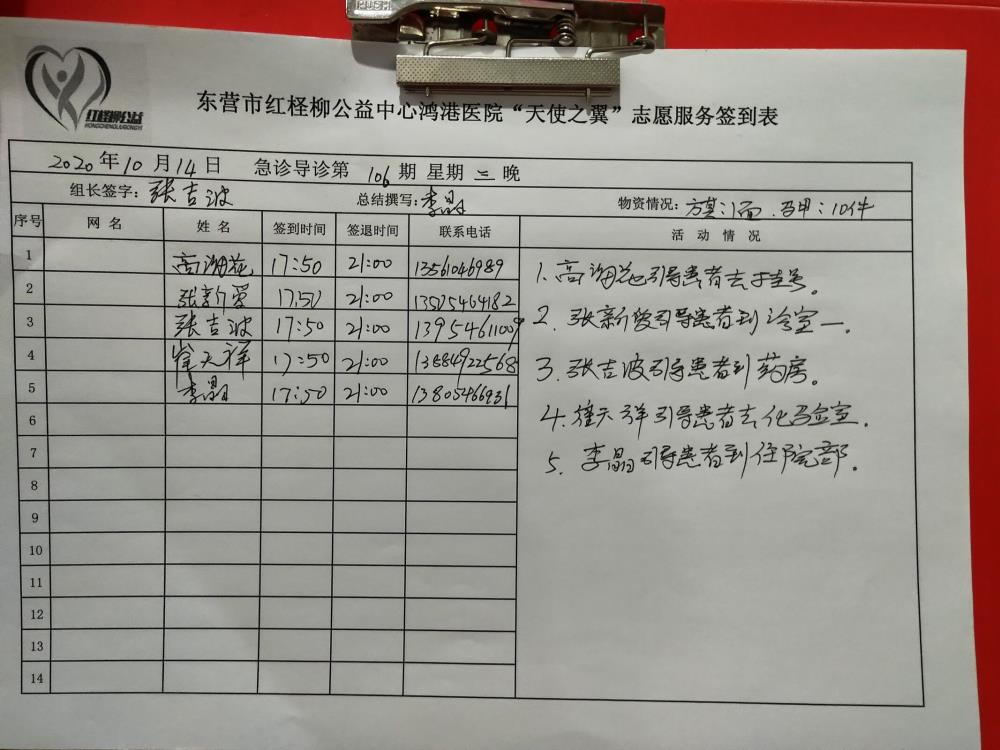 PUSH
红柽柳公益
HONGCHENGLIUGONGYI
东营市红柽柳公益中心鸿港医院“天使之翼”志愿服务签到表
2020年10月14日 急诊导诊第106期 星期三晚
组长签字：张吉波 总结撰写：李晶 物资情况：旗：1面．马甲：10件
序号 网名 姓名 签到时间 签退时间 联系电话 活动情况
1 高润花 17:50 21:00 13561046989
2 张新爱 17:50 21:00 13525464182
3 张吉波 17:50 21:00 13954611009
4 崔天祥 17:50 21:00 13884922568
5 李晶 17:50 21:00 13805466931
6
7
8
9
10
11
12
13
14
1. 高润花引导患者去挂号。
2. 张新爱引导患者到诊室一.
3. 张吉波引导患者到药房。
4. 崔天祥引导患者去化验室.
5. 李晶引导患者到住院部.